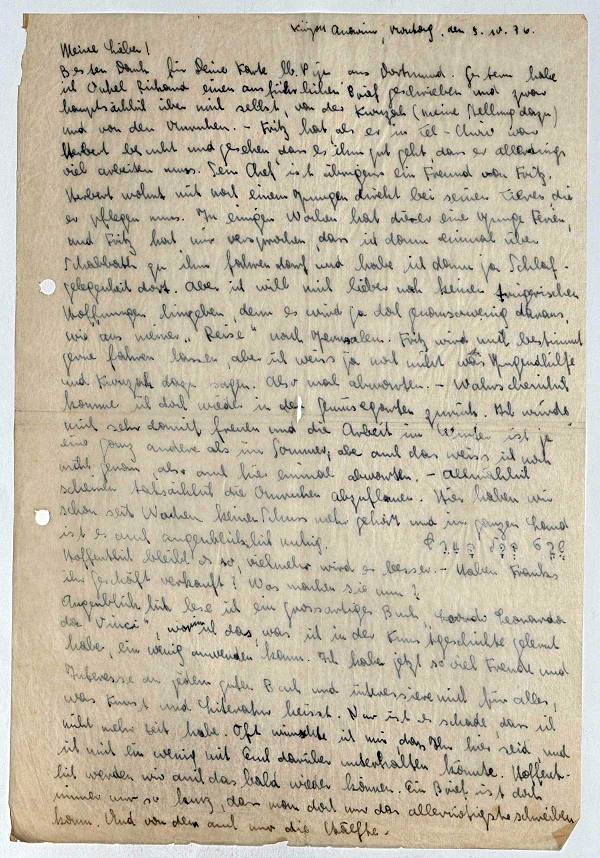 Kibbuz Anavim, Vorabg, den 3. 10. 36.
Meine Lieben!
Besten Dank für Deine Karte lb. aus Dortmund. Gestern habe
ich Onkel Richard einen ausführlichen Brief geschrieben und zwar
hauptsächlich über mich selbst, von der Kwuzah (meine Stellung dazu)
und von den Unruhen. – Fritz hat als er in Tel-Awiw war
Herbert besucht und gesehen dass es ihm gut geht, dass er allerdings
viel arbeiten muss. Sein Chef ist übrigens ein Freund von Fritz.
Herbert wohnt mit noch einem Jungen direkt bei seinen Tieren die
er pflegen muss. In einigen Wochen hat dieser eine Junge Ferien,
und Fritz hat mir versprochen, dass ich dann einmal über
Schabbath zu ihm fahren darf und habe ich dann ja Schlaf-
gelegenheit dort. Aber ich will mich lieber noch keinen trügerischen
Hoffnungen hingeben, denn es wird ja doch genausowenig daraus,
wie aus meiner "Reise" nach Jerusalem. Fritz wird mich bestimmt
gerne fahren lassen, aber ich weiss ja noch nicht was Jugendhilfe
und Kwuzah dazu sagen. Also mal abwarten. – Wahrscheinlich
komme ich doch wieder in den Gemüsegarten zurück. Ich würde
mich sehr damit freuen und die Arbeit im Winter ist ja
eine ganz andere als im Sommer, aber auch das weiss ich noch
nicht genau also auch hier einmal abwarten. – Allmählich
scheinen tatsächlich die Unruhen abzuflauen. Hier haben wir
schon seit Wochen keinen Schuss mehr gehört und im ganzen Land
ist es auch augenblicklich ruhig.
Hoffentlich bleibt es so, vielmehr wird es besser. – Haben Franks
ihr Geschäft verkauft? Was machen sie nun?
Augenblicklich lese ich ein grossartiges Buch, Leonardo
da Vinci", worin ich das, was ich in der Kunstgeschichte gelernt
habe, ein wenig anwenden kann. Ich habe jetzt so viel Freude und
Interesse an jedem guten Buch und interessiere mich für alles,
was Kunst und Literatur heisst. Nur ist es schade, dass ich
nicht mehr Zeit habe. Oft wünschte ich mir dass Ihr hier seid und
ich mich ein wenig mit Euch darüber unterhalten könnte. Hoffent-
lich werden wir auch das bald wieder können. Ein Brief ist doch
immer nur so kurz, dass man dort nur das allernötigste schreiben
kann. Und von dem auch nur die Hälfte.